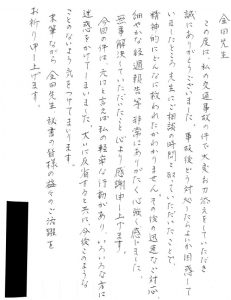 金田先生
この度は、私の交通事故の件で大変お力添えをしていただき
誠にありがとうございました。事故後どう対応したらよいか困惑して
いましたところ、先生にご相談の時間を取っていただいたことで、
精神的にどんなに救われたかわかりません。その後の迅速なご対応、
細やかな経過報告等、非常にありがたく心強く感じました。
無事解決していただいたことを心より感謝申し上げます。
今回の件は、元はと言えば私の軽率な行動があり、いろいろな方に
迷惑をかけてしまいました。大いに反省すると共に、今後このような
ことのないよう気をつけてまいります。
末筆ながら金田先生、秘書の皆様の益々のご活躍を
お祈り申し上げます。